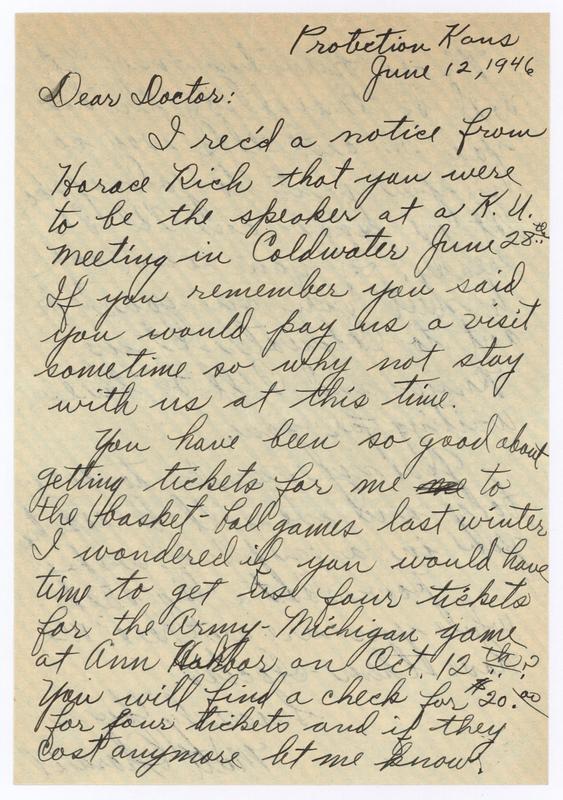 Protection Kans
June 12, 1946
Dear Doctor:
I rec'd a notice from
Horace Rich that you were
to be the speaker at a K.U.
meeting in Coldwater June 28th.
If you remember you said
you would pay us a visit
sometime so why not stay
with us at this time.
You have been so good about
getting tickets for me me to
the basket-ball games last winter
I wondered if you would have
time to get us four tickets
for the Army-Michigan game
at Ann Harbor on Oct. 12th?
You will find a check for $20.00
for four tickets and if they
cost anymore let me know.